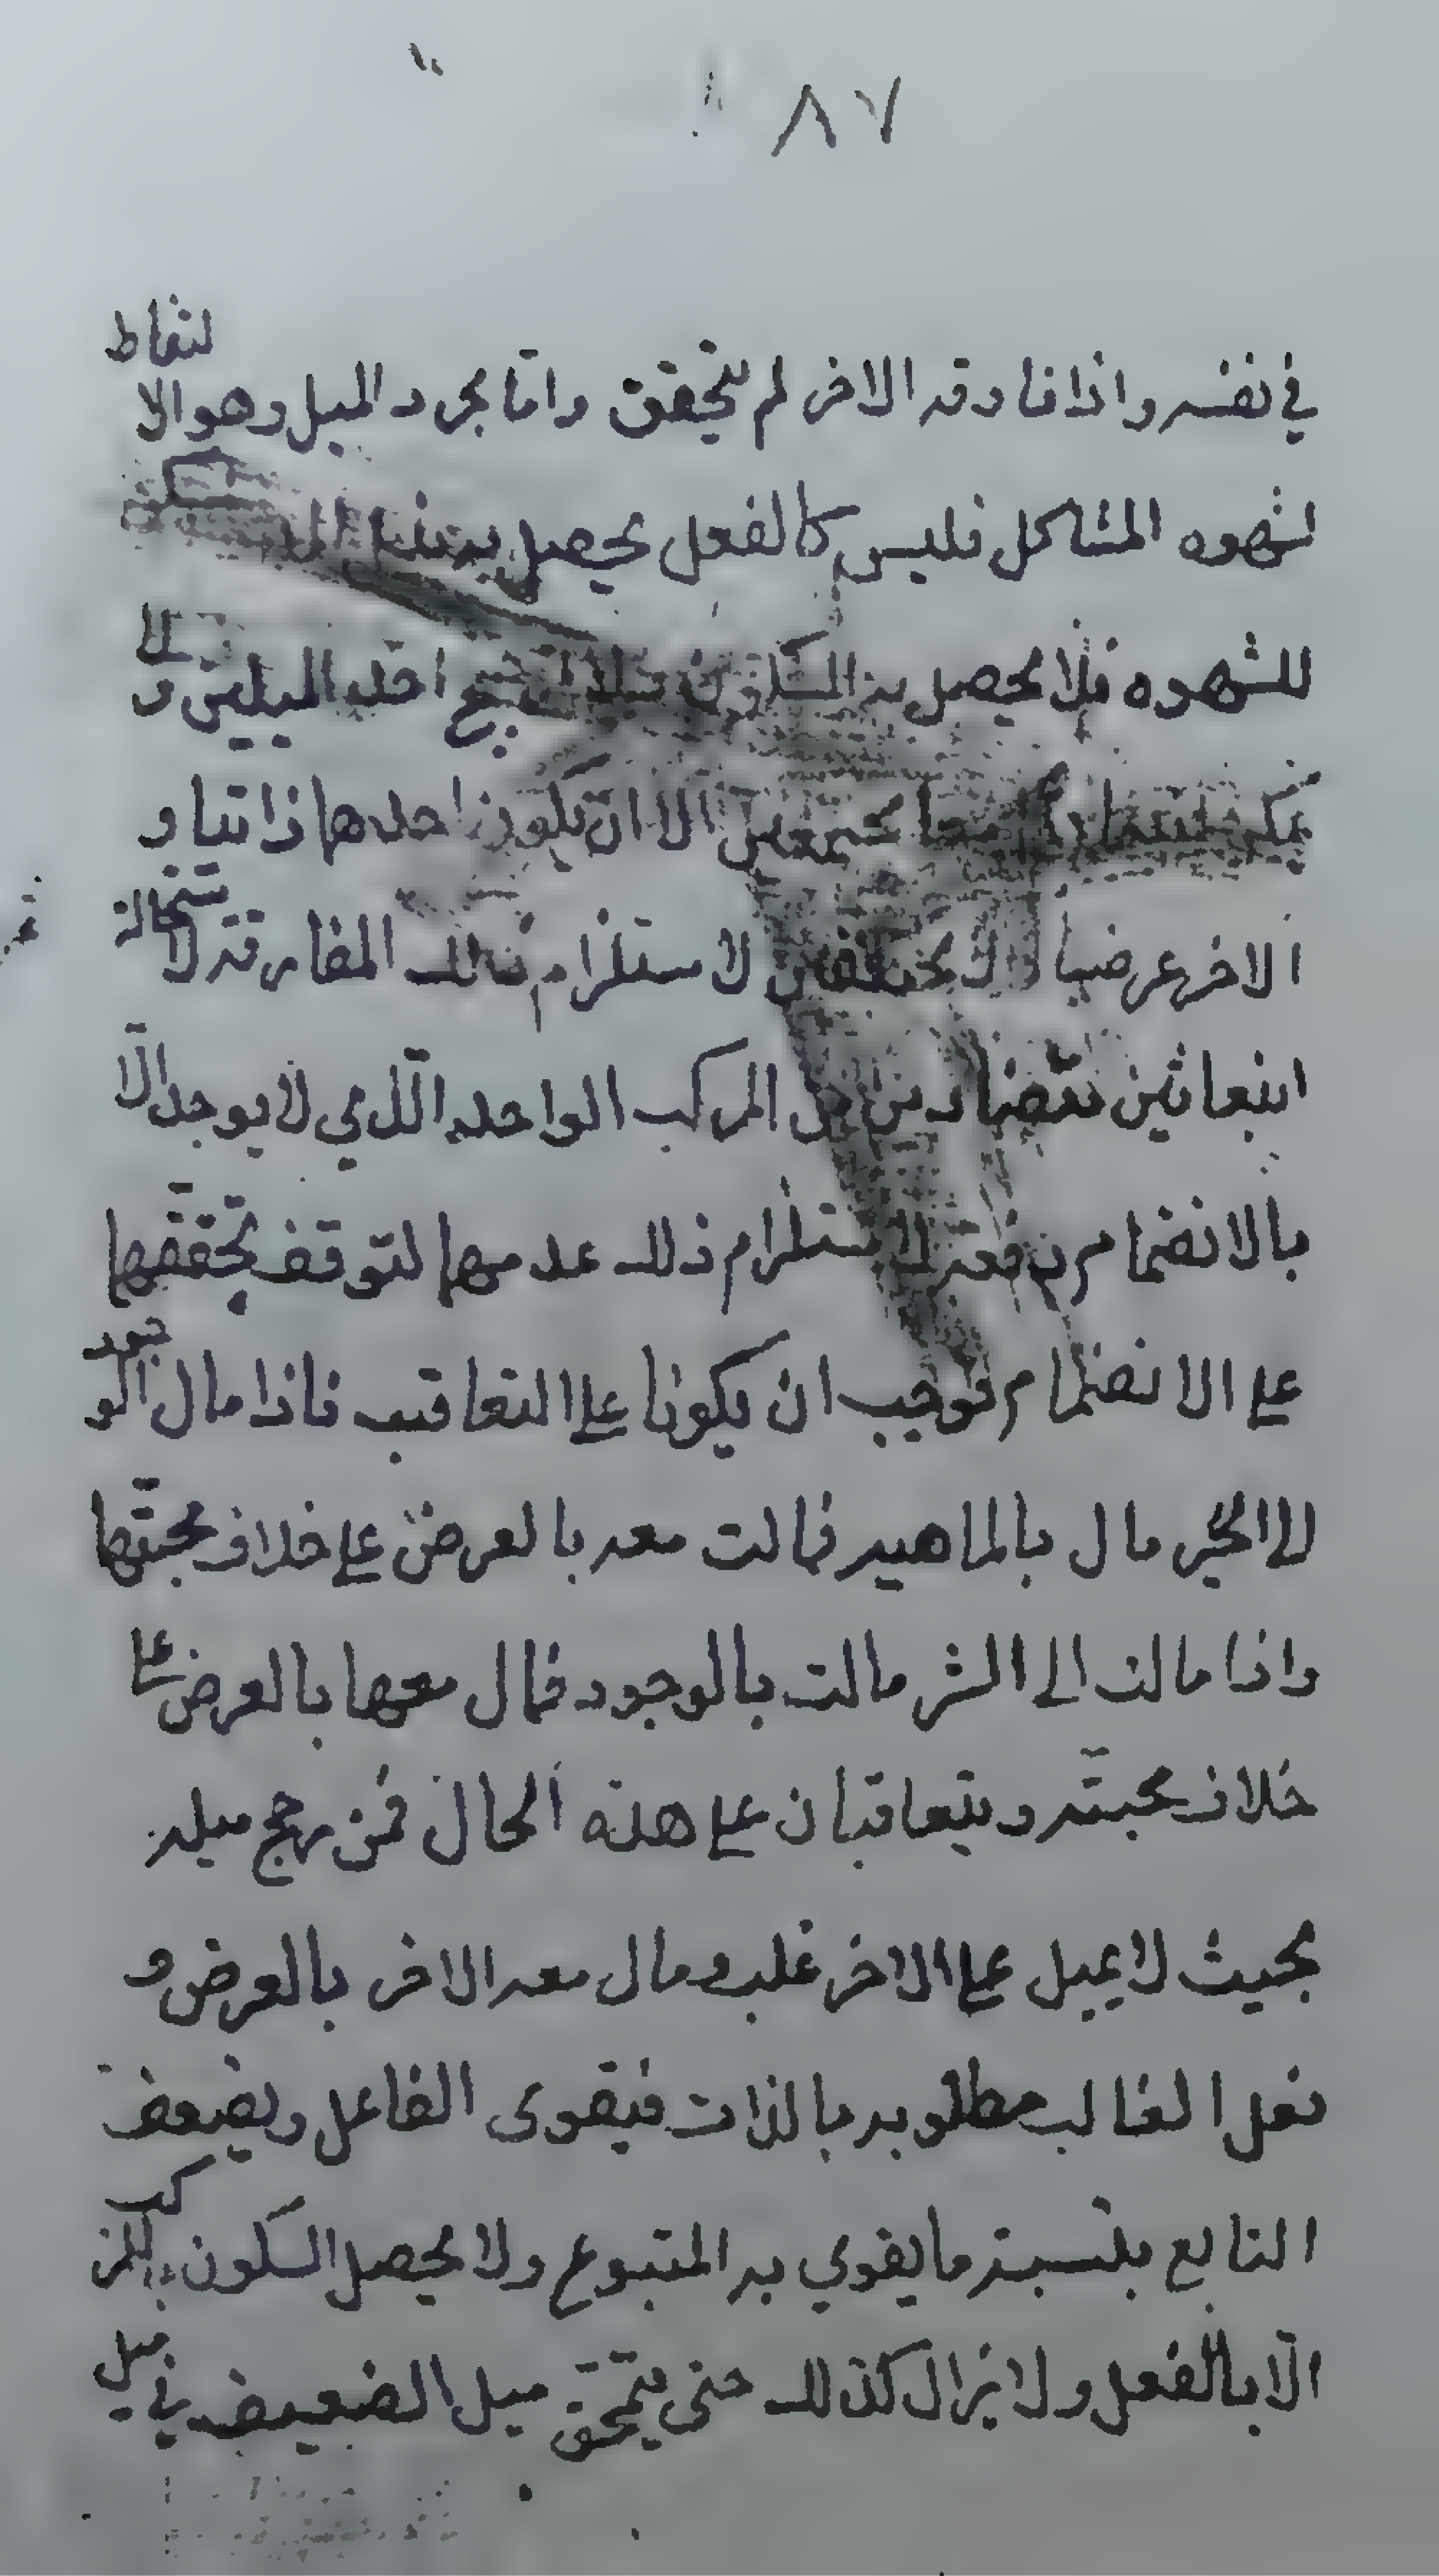 ٨٧
في نفسه واذا فارقه الاخر لم يتحقق وامّا مجرد الميل وهو الالتفات
لشهوه المشاكل فليس كالفعل يحصل به
للشهوه فلا يحصل به السكون احد الميلين ولا
الا ان يكون احدهما ذاتيا و
الاخر عرضيا لاستلزام ذلك المفارقة لاستحالة
انبعاثين متضادين من المركب الواحد الّذي لا يوجد الّا
بالانضمام دفعة لاستلزام ذلك عدمهما لتوقف تحققهما
على الانضمام فوجب ان يكونا على التعاقب فاذا مال الوجود
الى الخير مال بالماهيه فمالت معه بالعرض على خلاف محبتها
واذا مالت الى الشر مالت بالوجود فمال معها بالعرض على
خلاف محبته ويتعاقبان على هذه الحال فمن رجح ميله
بحيث لا يميل على الاخر غلب ومال معه الاخر بالعرض و
فعل الغالب مطلوبه بالذات فيقوى الفاعل ويضعف
التابع بنسبة ما يقوي به المتبوع ولا يحصل السكون للمركب
الّا بالفعل ولا يزال كذلك حتى يتمحق ميل الضعيف في ميل